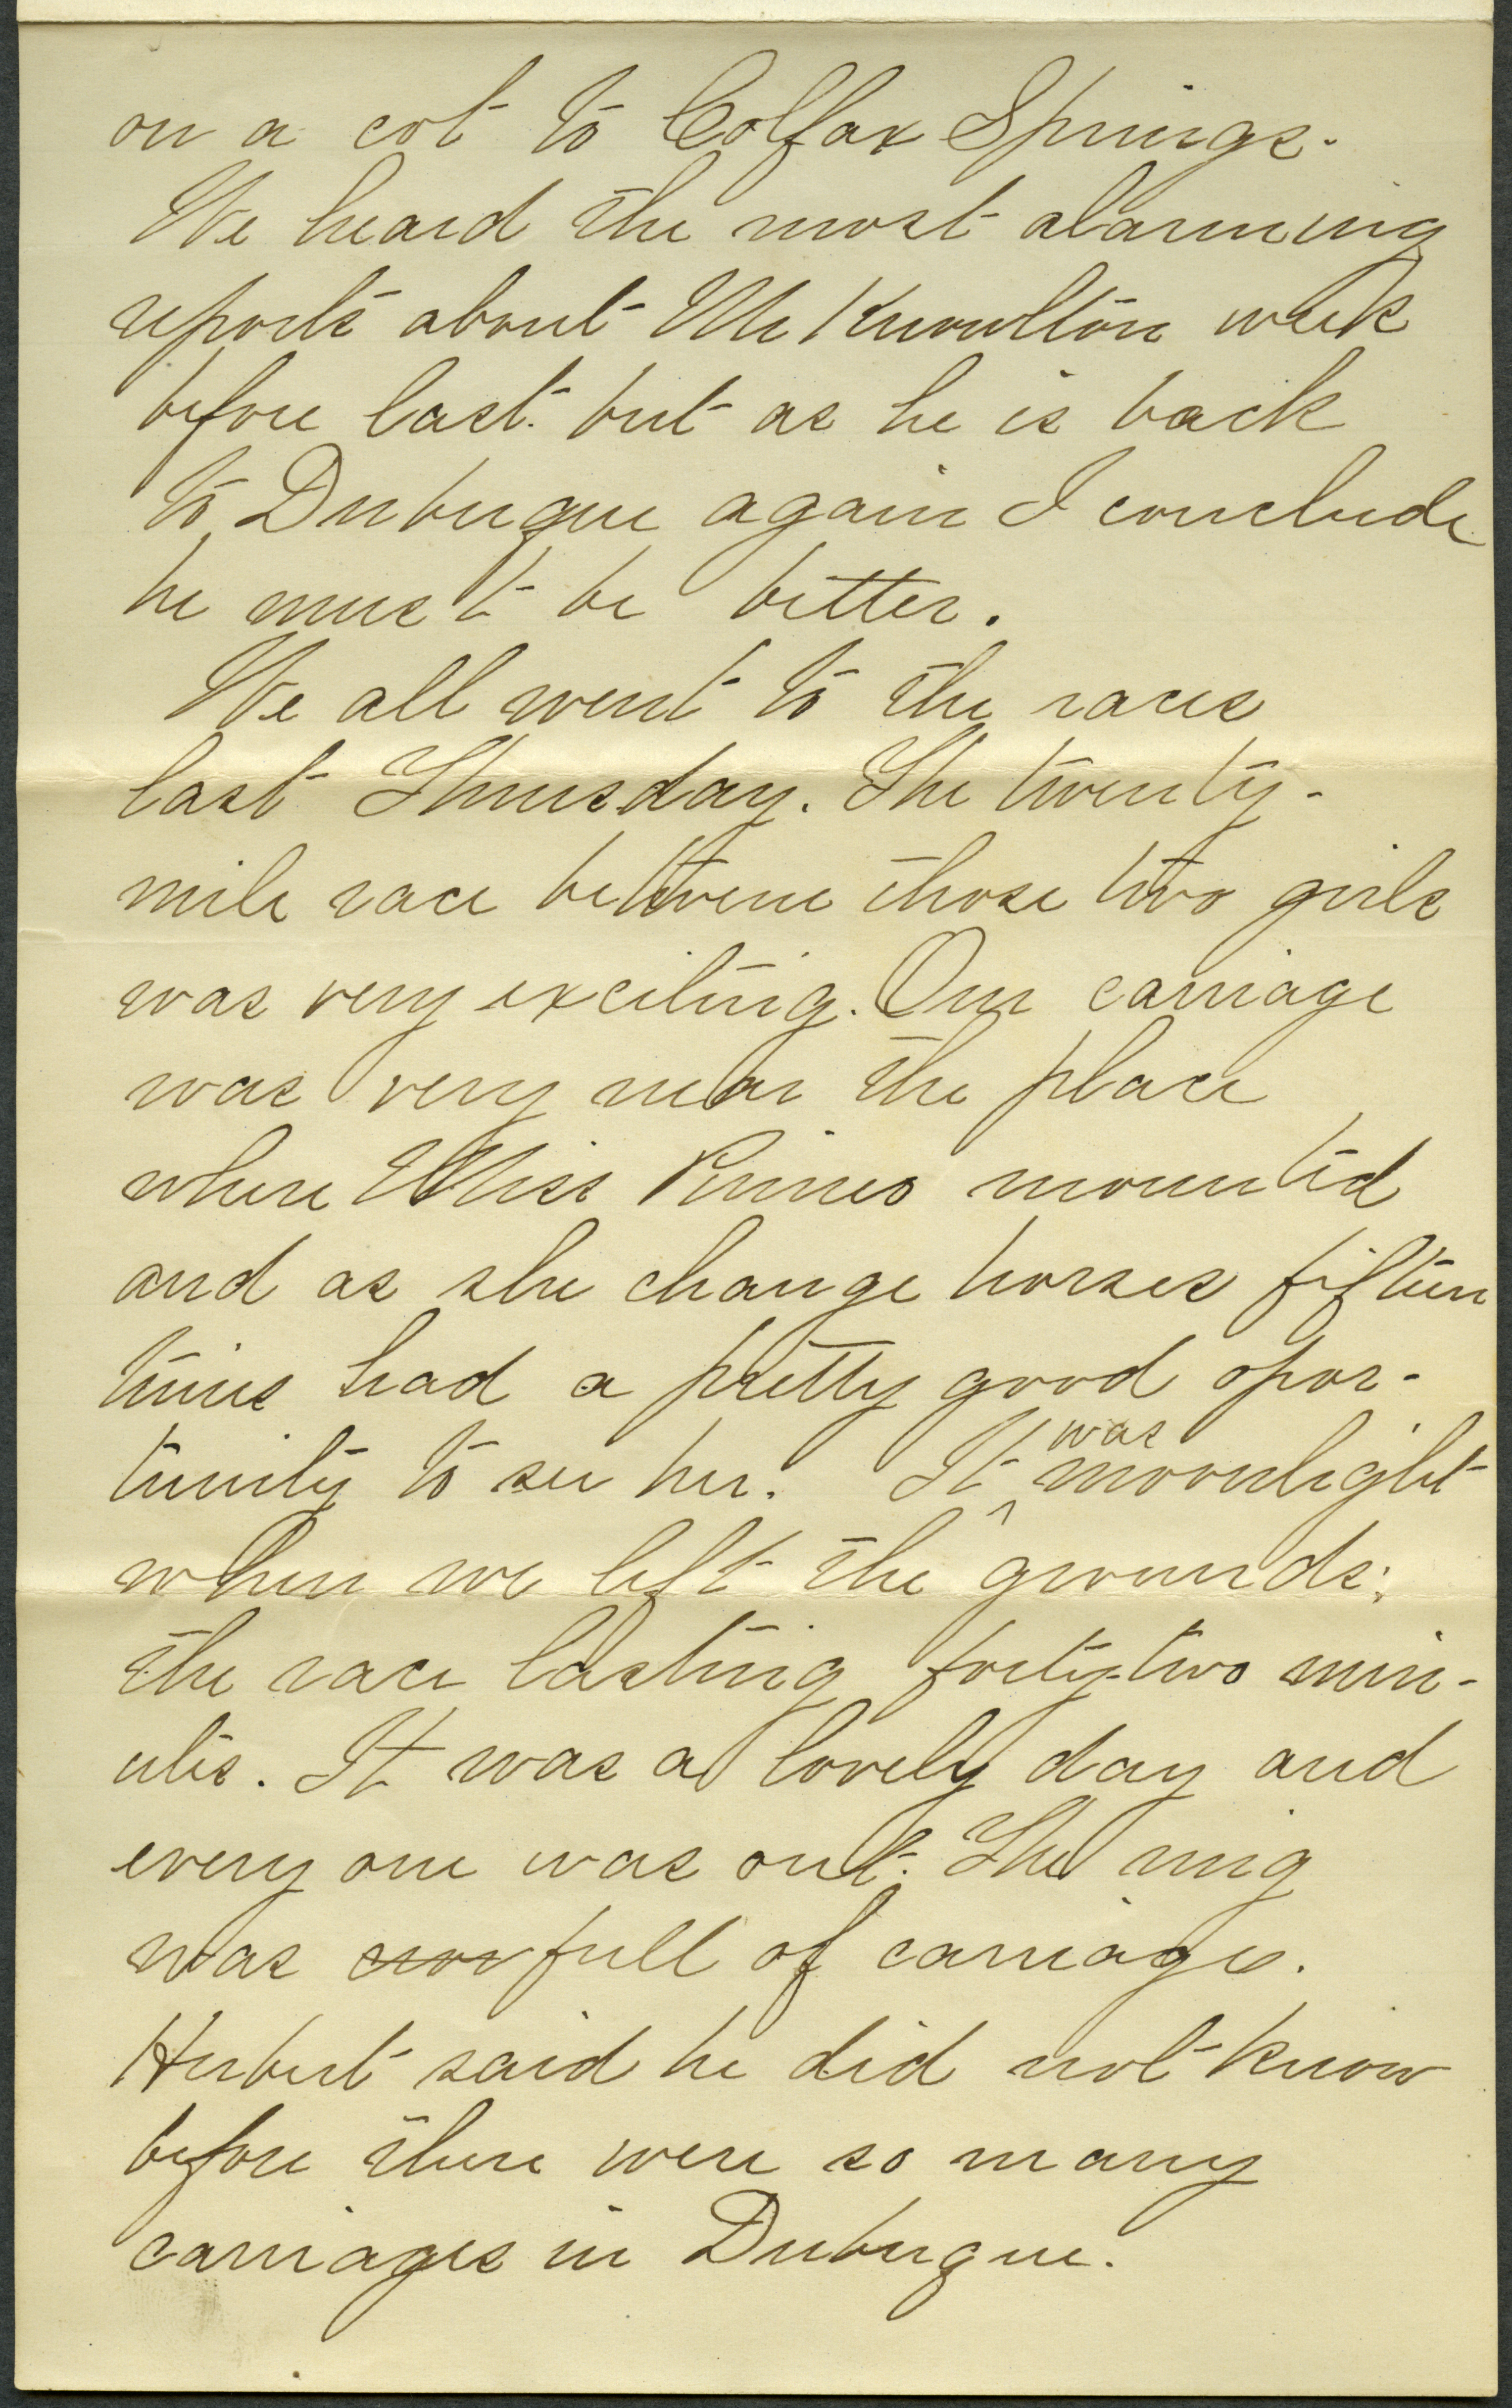 on a cot to Colfax Springs.
We heard the most alarming
reports about Mr Knowlton week
before last. but as he is back
to Dubuque again I conclude
he must be better.
We all went to the races
last Thursday. The twenty-
mile race between those two girls
was very exciting. Our carriage
was very near the place
where Miss Pinneo mounted
and as she change horses fifteen
times had a pretty good opor-
tunity to see her. It was moonlight
when we left the grounds;
the race lasting forty-two min-
utes. It was a lovely day and
every one was out. The ring
was full of carriages.
Herbert said he did not know
before there were so many
carriages in Dubuque.